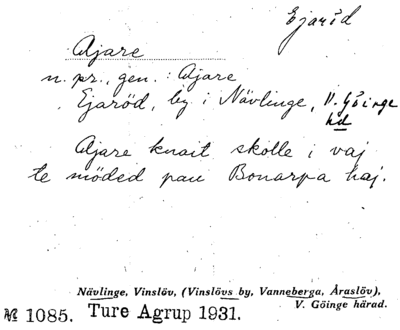 Ejaröd
Ajare
n. pr., gen.: Ajare
Ejaröd, by i Nävlinge, V. Göinge
hd
Ajare knait skolle i vaj
te möded pau Bonarpa haj.
Nävlinge, Vinslöv, (Vinslövs by, Vanneberga, Åraslöv),
V. Göinge härad.
№ 1085. Ture Agrup 1931.